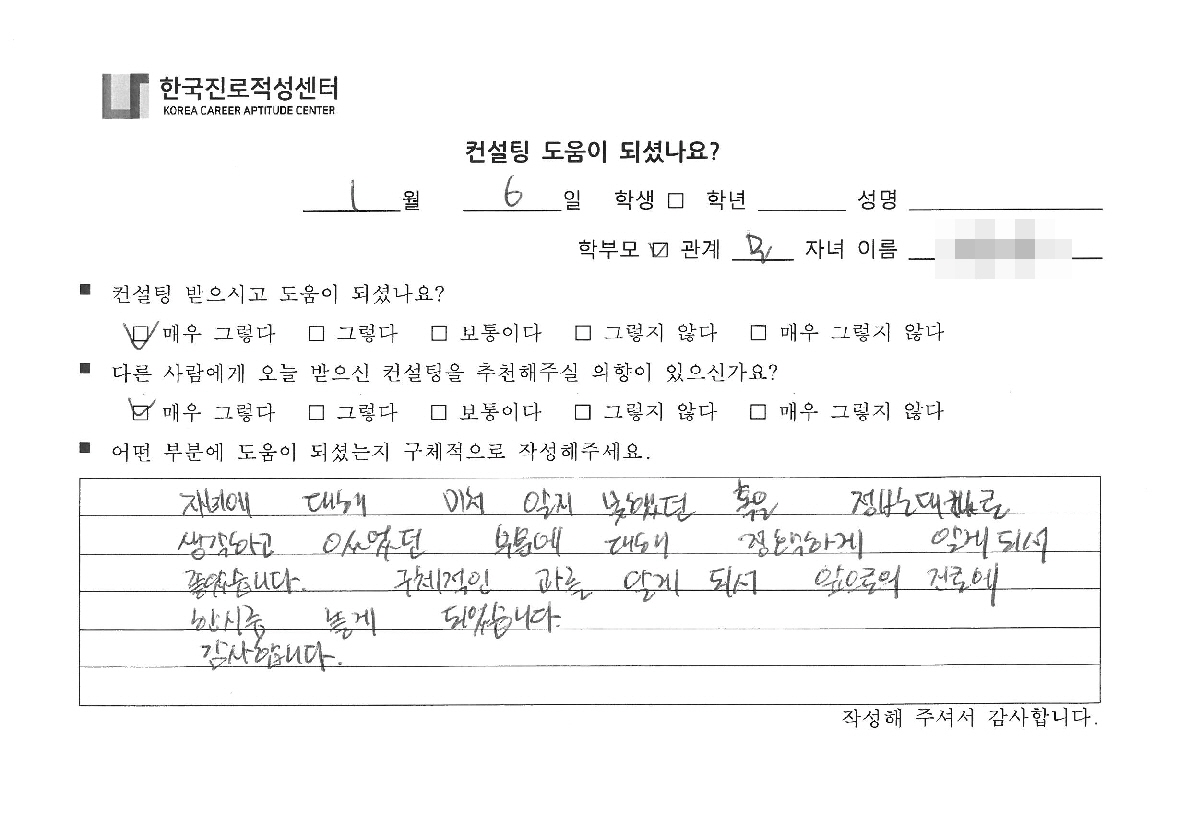 한국진로적성센터
KOREA CAREER APTITUDE CENTER
컨설팅 도움이 되셨나요?
1 월 6 일 학생 □ 학년 성명
학부모 ☑ 관계 모 자녀 이름
■ 컨설팅 받으시고 도움이 되셨나요?
☑ 매우 그렇다 □ 그렇다 □ 보통이다 □ 그렇지 않다 □ 매우 그렇지 않다
■ 다른 사람에게 오늘 받으신 컨설팅을 추천해주실 의향이 있으신가요?
☑ 매우 그렇다 □ 그렇다 □ 보통이다 □ 그렇지 않다 □ 매우 그렇지 않다
■ 어떤 부분에 도움이 되셨는지 구체적으로 작성해주세요.
자녀에 대해 미처 알지 못했던 혹은
생각하고 있었던 부분에 대해 정확하게 알게 되서
좋았습니다. 구체적인 과를 알게 되서 앞으로의 진로에
한시름 놓게 되었습니다.
감사합니다.
작성해 주셔서 감사합니다.